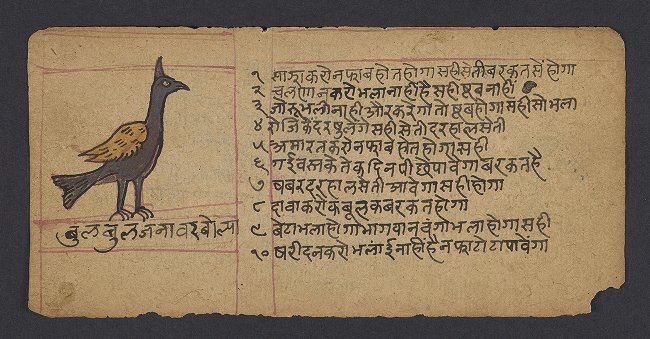 बुलबुल जनावर बोल्या
१ साझा करो नफा बहोत होगा सही सेती बरकत सें होगा
२ चलोणा न करो भला नाही है सही षुब नाहीं
३ जोरू भली नाही और करेगो तो षुब होगा सही सो भला
४ रोजि के दर षुलेगे सही सेती दरहाल सेती
५ अमारत करो नफा होत होगा सही
६ गई वस्त केतेक दिन पीछे पावेगा बरकत है
७ षबर दरहाल सेती आवेगा सही होगा
८ दावा करो कबूल क बरकत होगो
९ बेटा भला होगा भागवान चंगो भला होगा सही
१० षरीद न करो भलाई नाही है नफा टोटा पावेगा